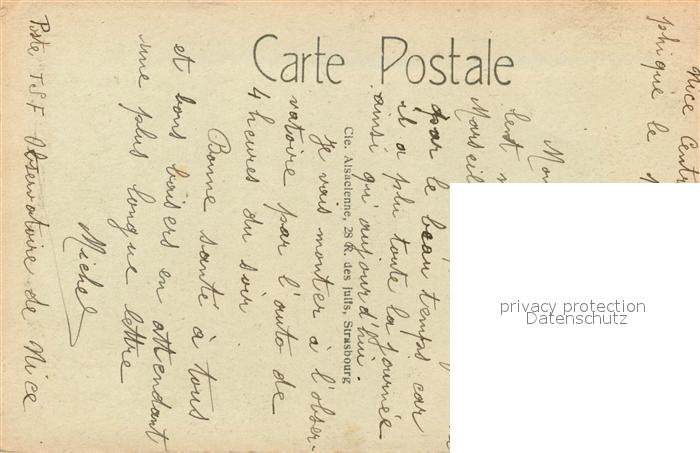 Carte Postale
Nice Cent
phique le
Mon
lent
Marseil
par le beau temps car
il a plu toute la journée
ainsi qu'aujourd'hui.
Cie. Alsacienne, 28 R. des juifs, Strasbourg
Je vais monter à l'obser-
vatoire par l'auto de
4 heures du soir
Bonne santé à tous
et bons baisers en attendant
une plus longue lettre
Michel
Poste T.S.F Observatoire de Nice
privacy protection
Datenschutz